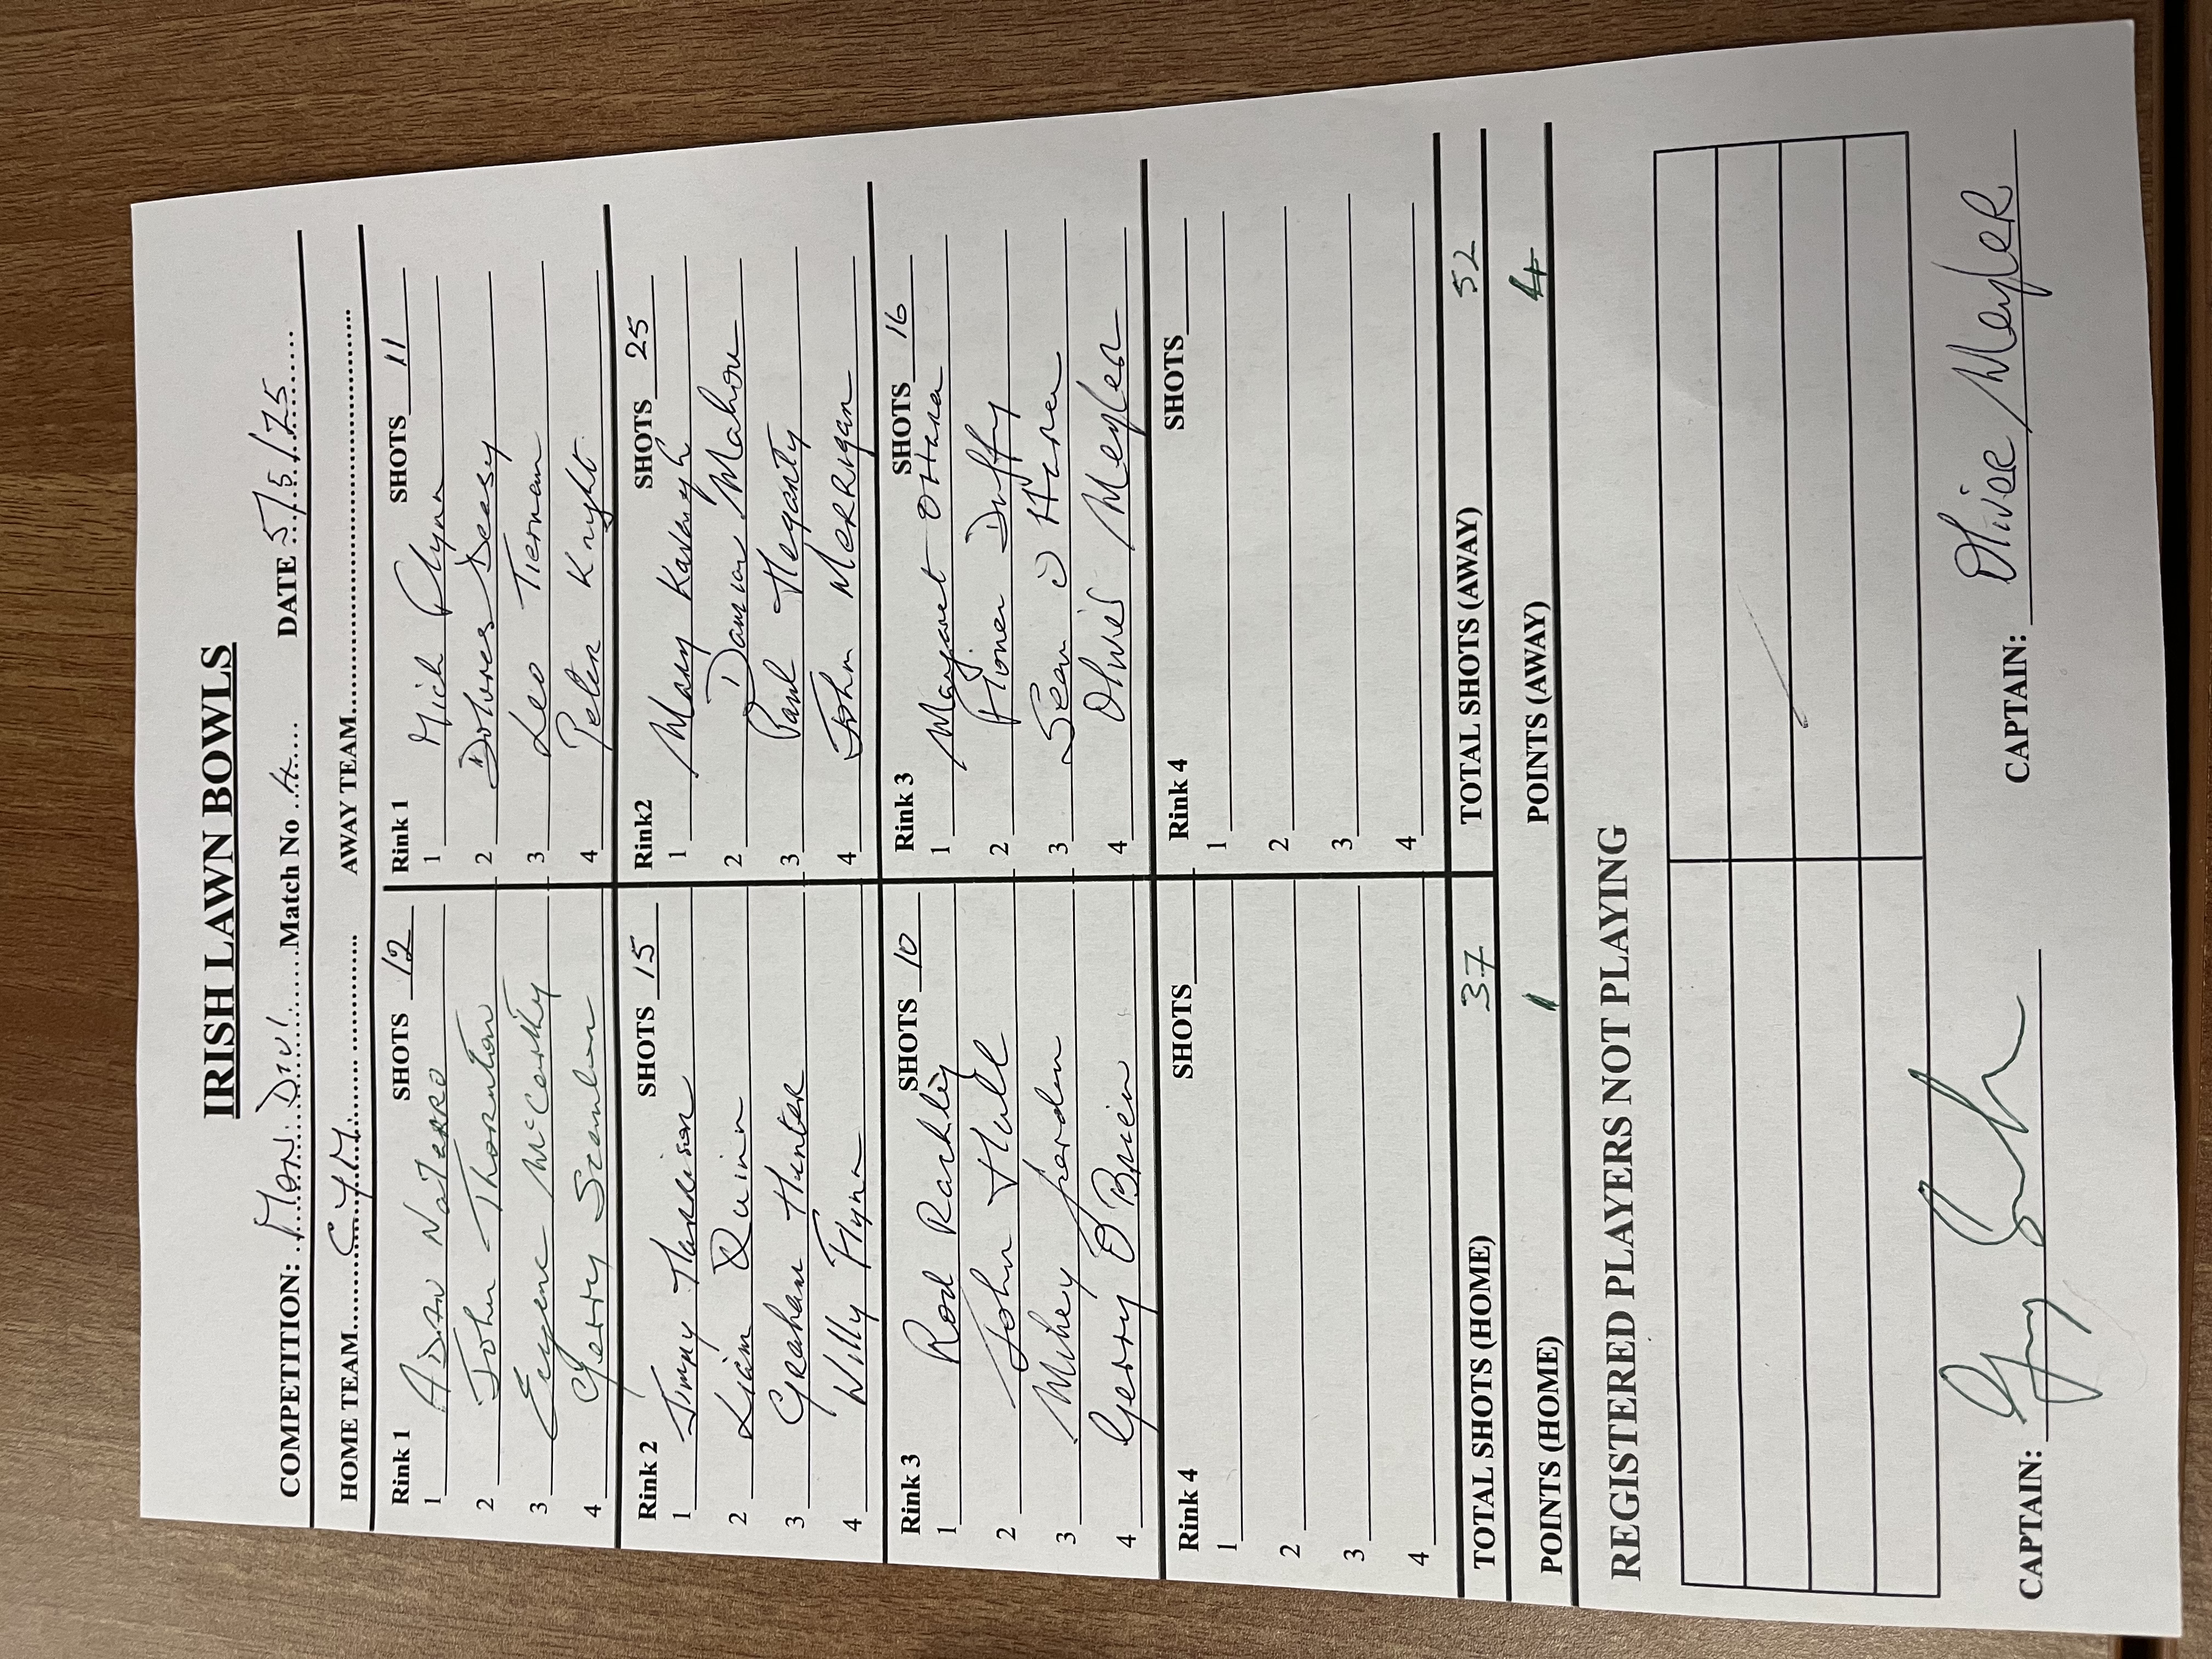 IRISH LAWN BOWLS
COMPETITION: Mon. Div 1 Match No 4 DATE 5/5/25
HOME TEAM C.Y.M. AWAY TEAM
Rink 1 SHOTS 12
1
2 John Thornton
3 Eugene McCarthy
4 Gerry Scanlon
Rink 1 SHOTS 11
1 Mich Glynn
2 Dolores Deasy
3 Leo Tiernan
4 Peter Knight
Rink 2 SHOTS 15
1 Jimmy Harrison
2 Liam Quinn
3 Graham Hunter
4 Willy Flynn
Rink2 SHOTS 25
1 Mary Kavanagh
2 Damian Mahon
3 Paul Hegarty
4 John MERRIGAN
Rink 3 SHOTS 10
1 Rod Rachley
2 John Hull
3 Mikey Jordan
4 Gerry O'Brien
Rink 3 SHOTS 16
1 Margaret O Hara
2 Duffy
3 Sean O Hara
4 Olivier Meyler
Rink 4 SHOTS
1
2
3
4
Rink 4 SHOTS
1
2
3
4
TOTAL SHOTS (HOME) 37 TOTAL SHOTS (AWAY) 52
POINTS (HOME) 1 POINTS (AWAY) 4
REGISTERED PLAYERS NOT PLAYING
CAPTAIN: CAPTAIN: Olivier Meyler